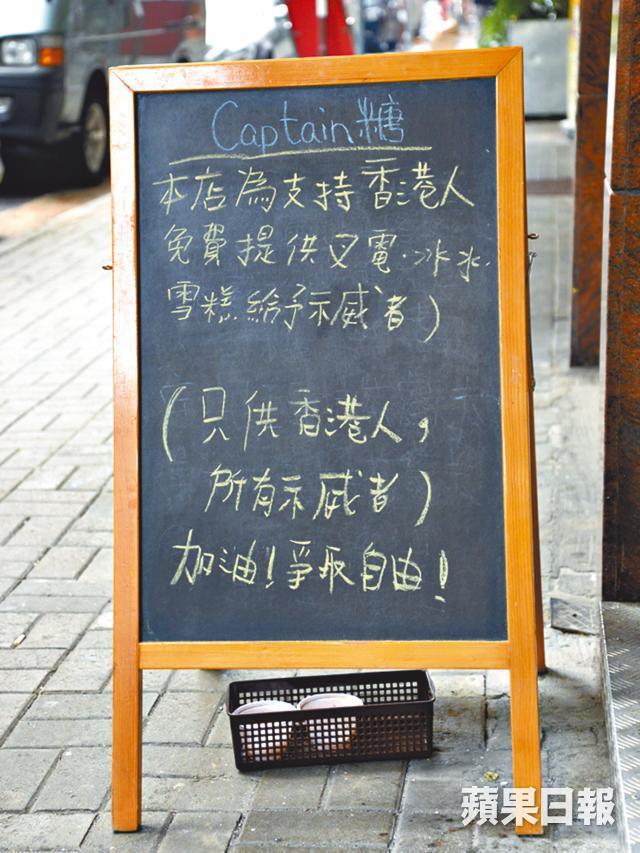 Captain糖
本店為支持香港人
免費提供叉電·冰水·
雪糕給予示威者)
(只供香港人，
所有示威者)
加油!爭取自由!
蘋果日報